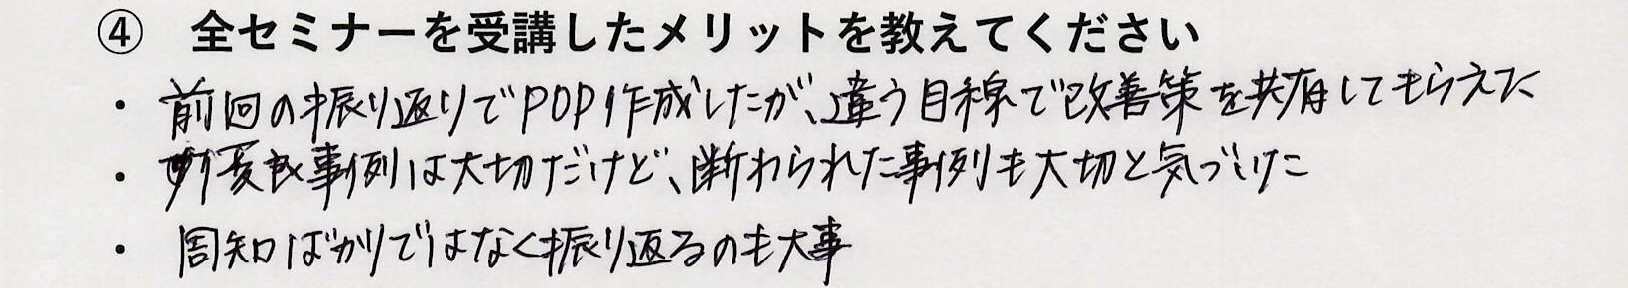 ④ 全セミナーを受講したメリットを教えてください
・前回の振り返りでPOP作成したが、違う目線で改善策を共有してもらえた
・事例は大切だけど、断わられた事例も大切と気づけた
・周知ばかりではなく振り返るのも大事